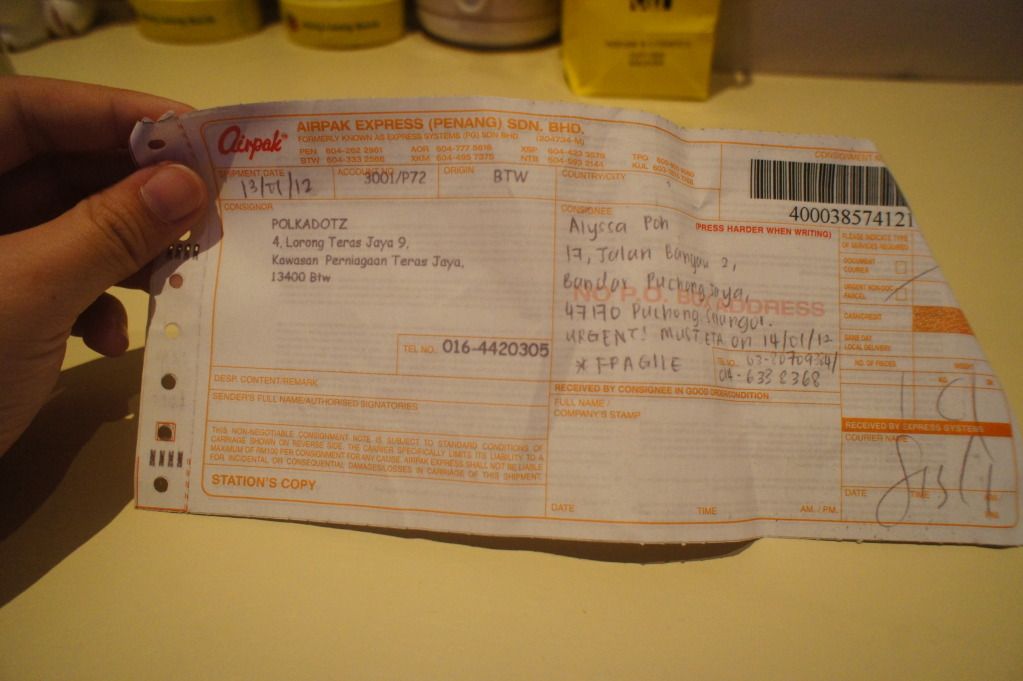 Airpak
AIRPAK EXPRESS (PENANG) SDN. BHD.
FORMERLY KNOWN AS EXPRESS SYSTEMS (PG) SDN BHD (204734-M)
PEN 604-262 2981 AOR 604-777 8616 XSP 604-423 3576 TPG
BTW 604-333 2566 XKM 604-495 7375 NTB 604-593 2141 KUL
CONSIGNMENT
SHIPMENT DATE ACCOUNT NO. ORIGIN COUNTRY/CITY
13/01/12 3001/P72 BTW
40003857412
CONSIGNOR
CONSIGNEE
(PRESS HARDER WHEN WRITING)
POLKADOTZ
4, Lorong Teras Jaya 9,
Kawasan Perniagaan Teras Jaya,
13400 Btw
TEL NO. 016-4420305
Alyssa Poh
17, Jalan Bangau 2,
Bandar Puchong Jaya,
47170 Puchong, Selangor.
URGENT! MUST ETA on 14/01/12
* FRAGILE
NO P.O. BOX ADDRESS
TEL NO.
014-633 8368
DESP. CONTENT/REMARK
SENDER'S FULL NAME/AUTHORISED SIGNATORIES
THIS NON-NEGOTIABLE CONSIGNMENT NOTE, IS SUBJECT TO STANDARD CONDITIONS OF
CARRIAGE SHOWN ON REVERSE SIDE. THE CARRIER SPECIFICALLY LIMITS ITS LIABILITY TO A
MAXIMUM OF RM100 PER CONSIGNMENT FOR ANY CAUSE. AIRPAK EXPRESS SHALL NOT BE LIABLE
FOR INCIDENTAL OR CONSEQUENTIAL DAMAGES/LOSSES IN CARRIAGE OF THIS SHIPMENT.
STATION'S COPY
RECEIVED BY CONSIGNEE IN GOOD ORDER/CONDITION
FULL NAME /
COMPANY'S STAMP
DATE TIME AM. / PM.
PLEASE INDICATE TYPE
OF SERVICES REQUIRED
DOCUMENT
COURIER
URGENT NON-DOC
PARCEL
CASH/CREDIT
SAME DAY
LOCAL DELIVERY
NO. OF PIECES WEIGHT
KG.
RECEIVED BY EXPRESS SYSTEMS
COURIER NAME
DATE TIME